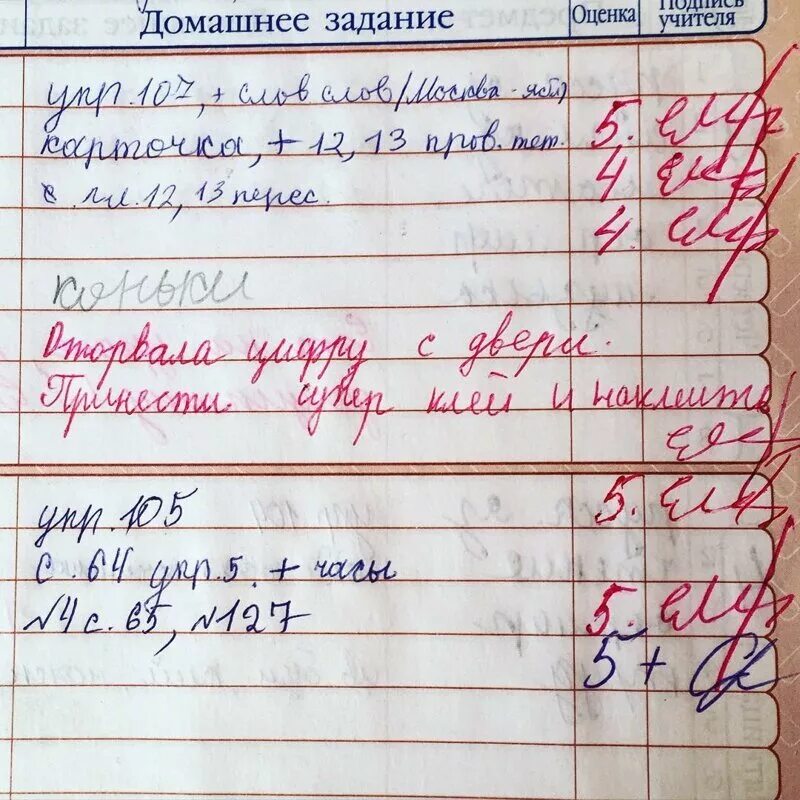 Домашнее задание Оценка Подпись учителя
упр. 107, + слов слов (Москва -
карточка, + 12, 13 пров. тет. 5.
с. 12, 13 перес. 4
4.
коньки
Оторвала цифру с двери.
Принести супер клей и наклеить
упр. 105 5.
с. 64 упр. 5. + часы
№4 с. 65, №127 5.
5+